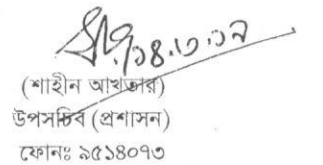 ১৪.৩.১৭
(শাহীন আখতার)
উপসচিব (প্রশাসন)
ফোনঃ ৯৫১৪০৭৩